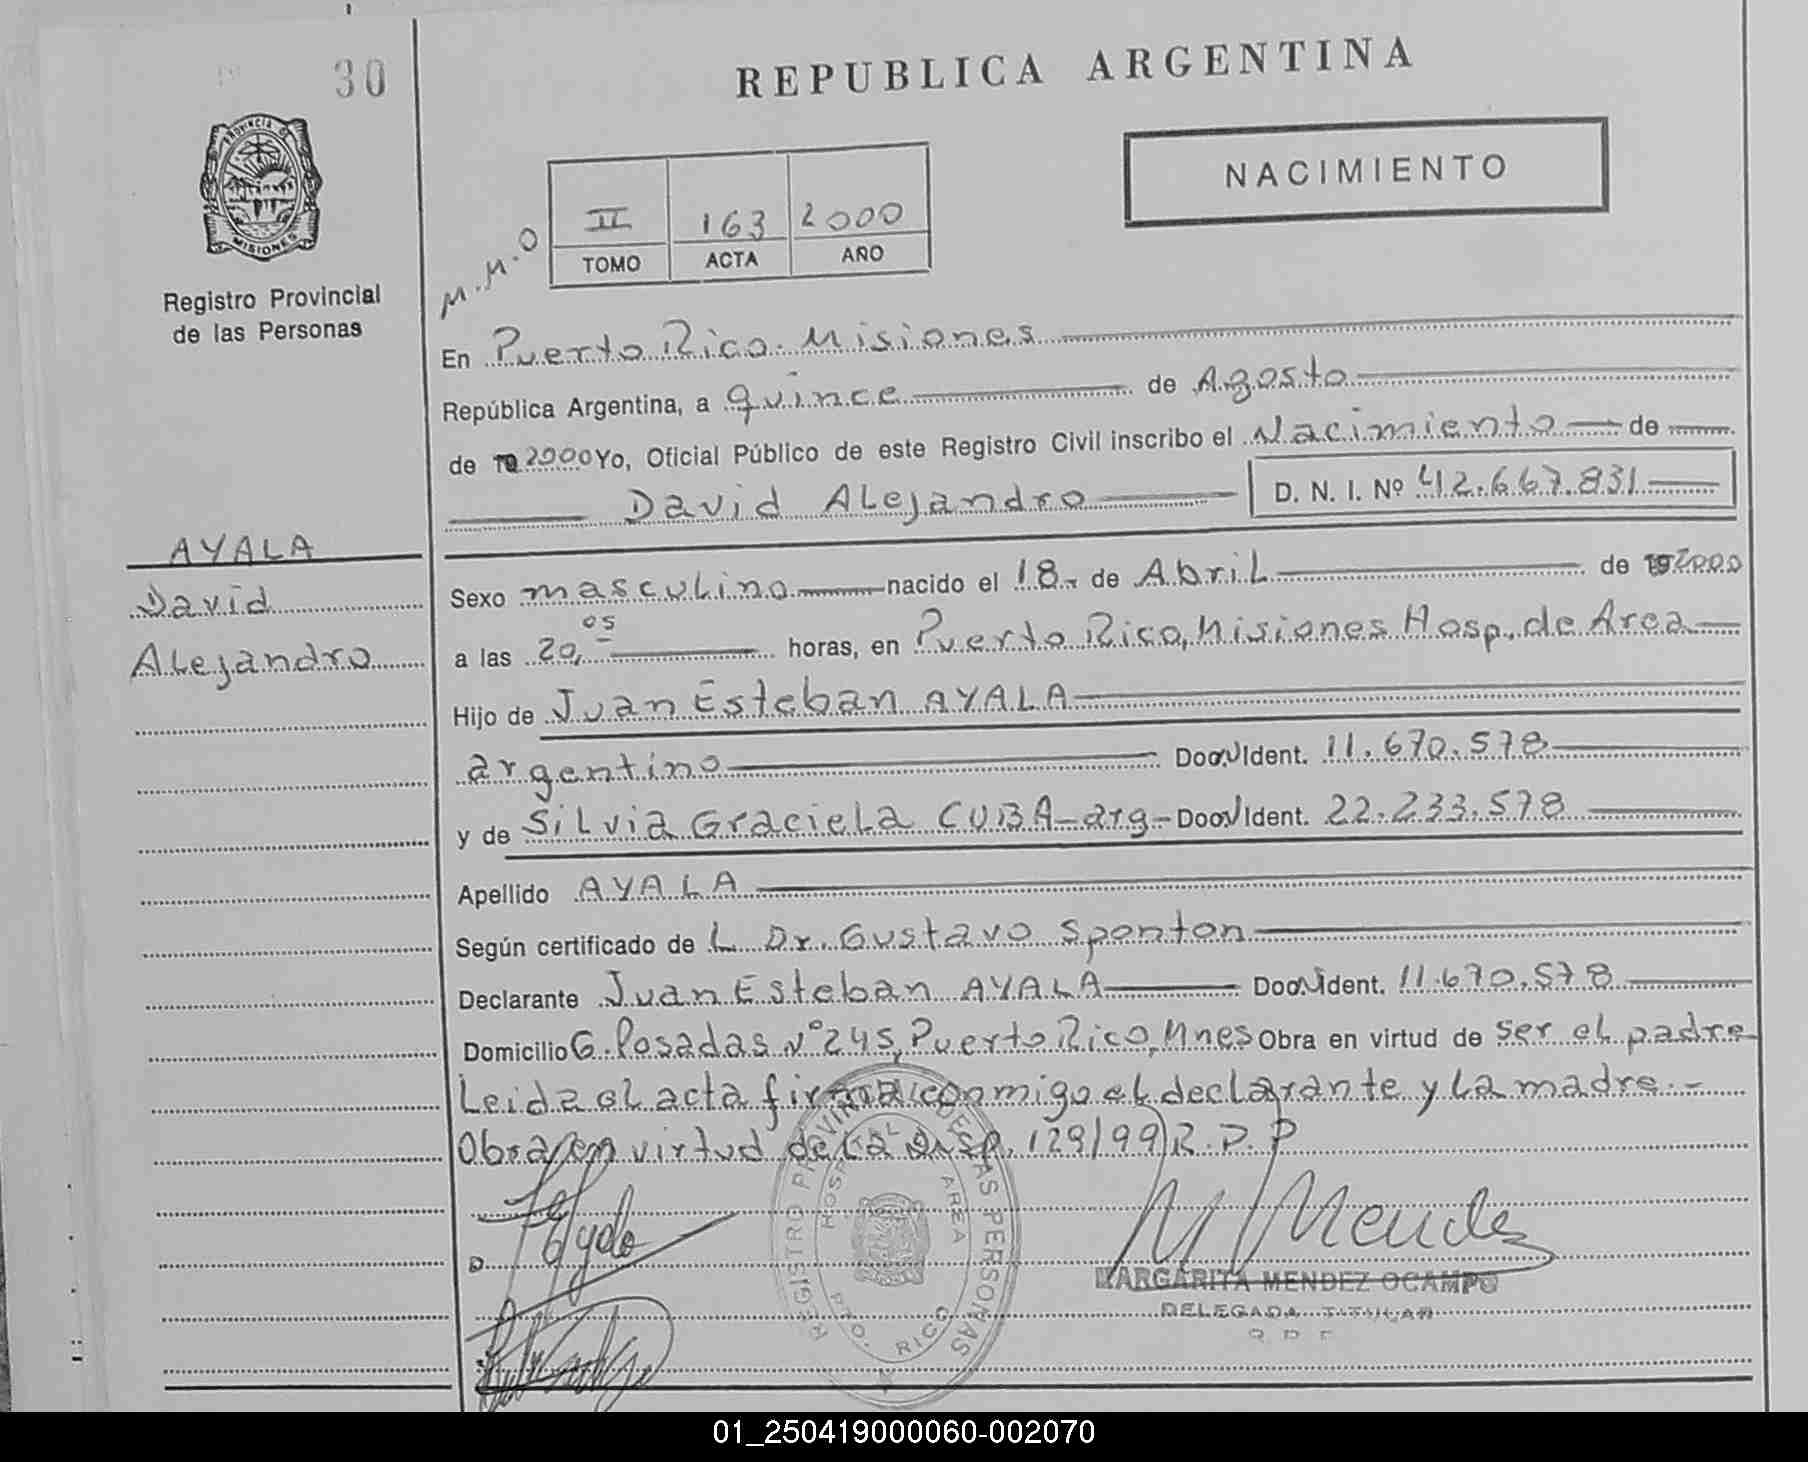 30
REPUBLICA ARGENTINA
PROVINCIA DE
MISIONES
NACIMIENTO
M.M.O
II 163 2000
TOMO ACTA AÑO
Registro Provincial
de las Personas
En Puerto Rico. Misiones
República Argentina, a quince de Agosto
de 2000 Yo, Oficial Público de este Registro Civil inscribo el Nacimiento de
David Alejandro D. N. I. Nº 42.667.831
AYALA
David
Alejandro
Sexo masculino nacido el 18 de Abril de 2000
a las 20,05 horas, en Puerto Rico, Misiones Hosp. de Area
Hijo de Juan Esteban AYALA
argentino Doc. Ident. 11.670.578
y de Silvia Graciela CUBA-arg- Doc. Ident. 22.233.578
Apellido AYALA
Según certificado de L Dr. Gustavo Sponton
Declarante Juan Esteban AYALA Doc. Ident. 11.670.578
Domicilio G. Posadas Nº 245, Puerto Rico, Mnes Obra en virtud de ser el padre
Leida el acta firma conmigo el declarante y la madre.-
Obra en virtud de la Disp. 129/99 R.P.P
REGISTRO PROVINCIAL DE LAS PERSONAS
HOSPITAL AREA
PTO. RICO
M Mendez
MARGARITA MENDEZ OCAMPO
DELEGADA TITULAR
01_250419000060-002070